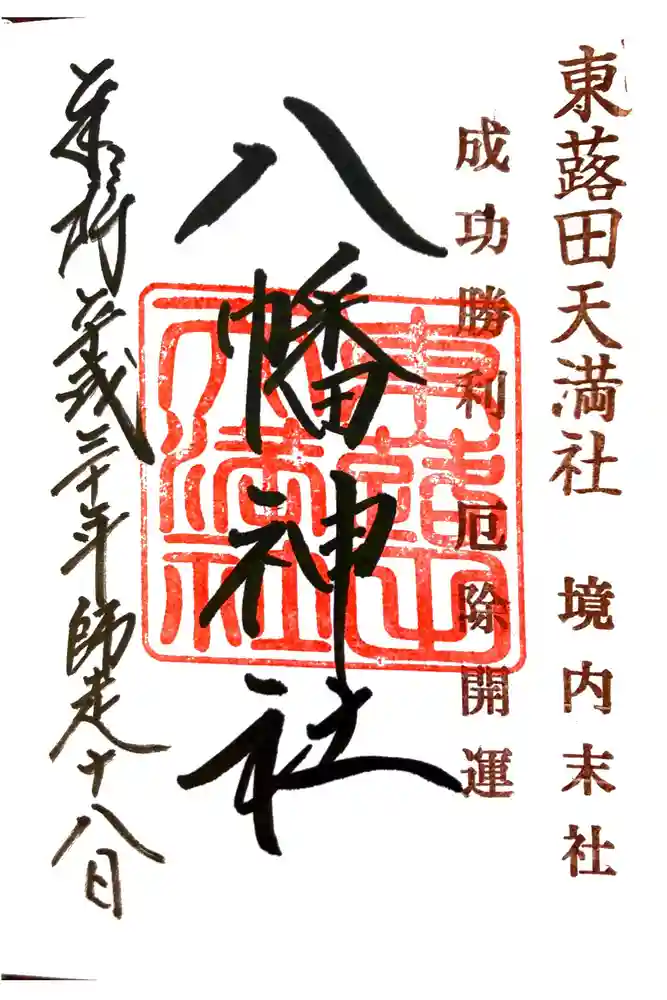 東蕗田天満社 境内末社
成功勝利厄除開運
八幡神社
東蕗田
天満社
業拝 平成三十年師走十八日